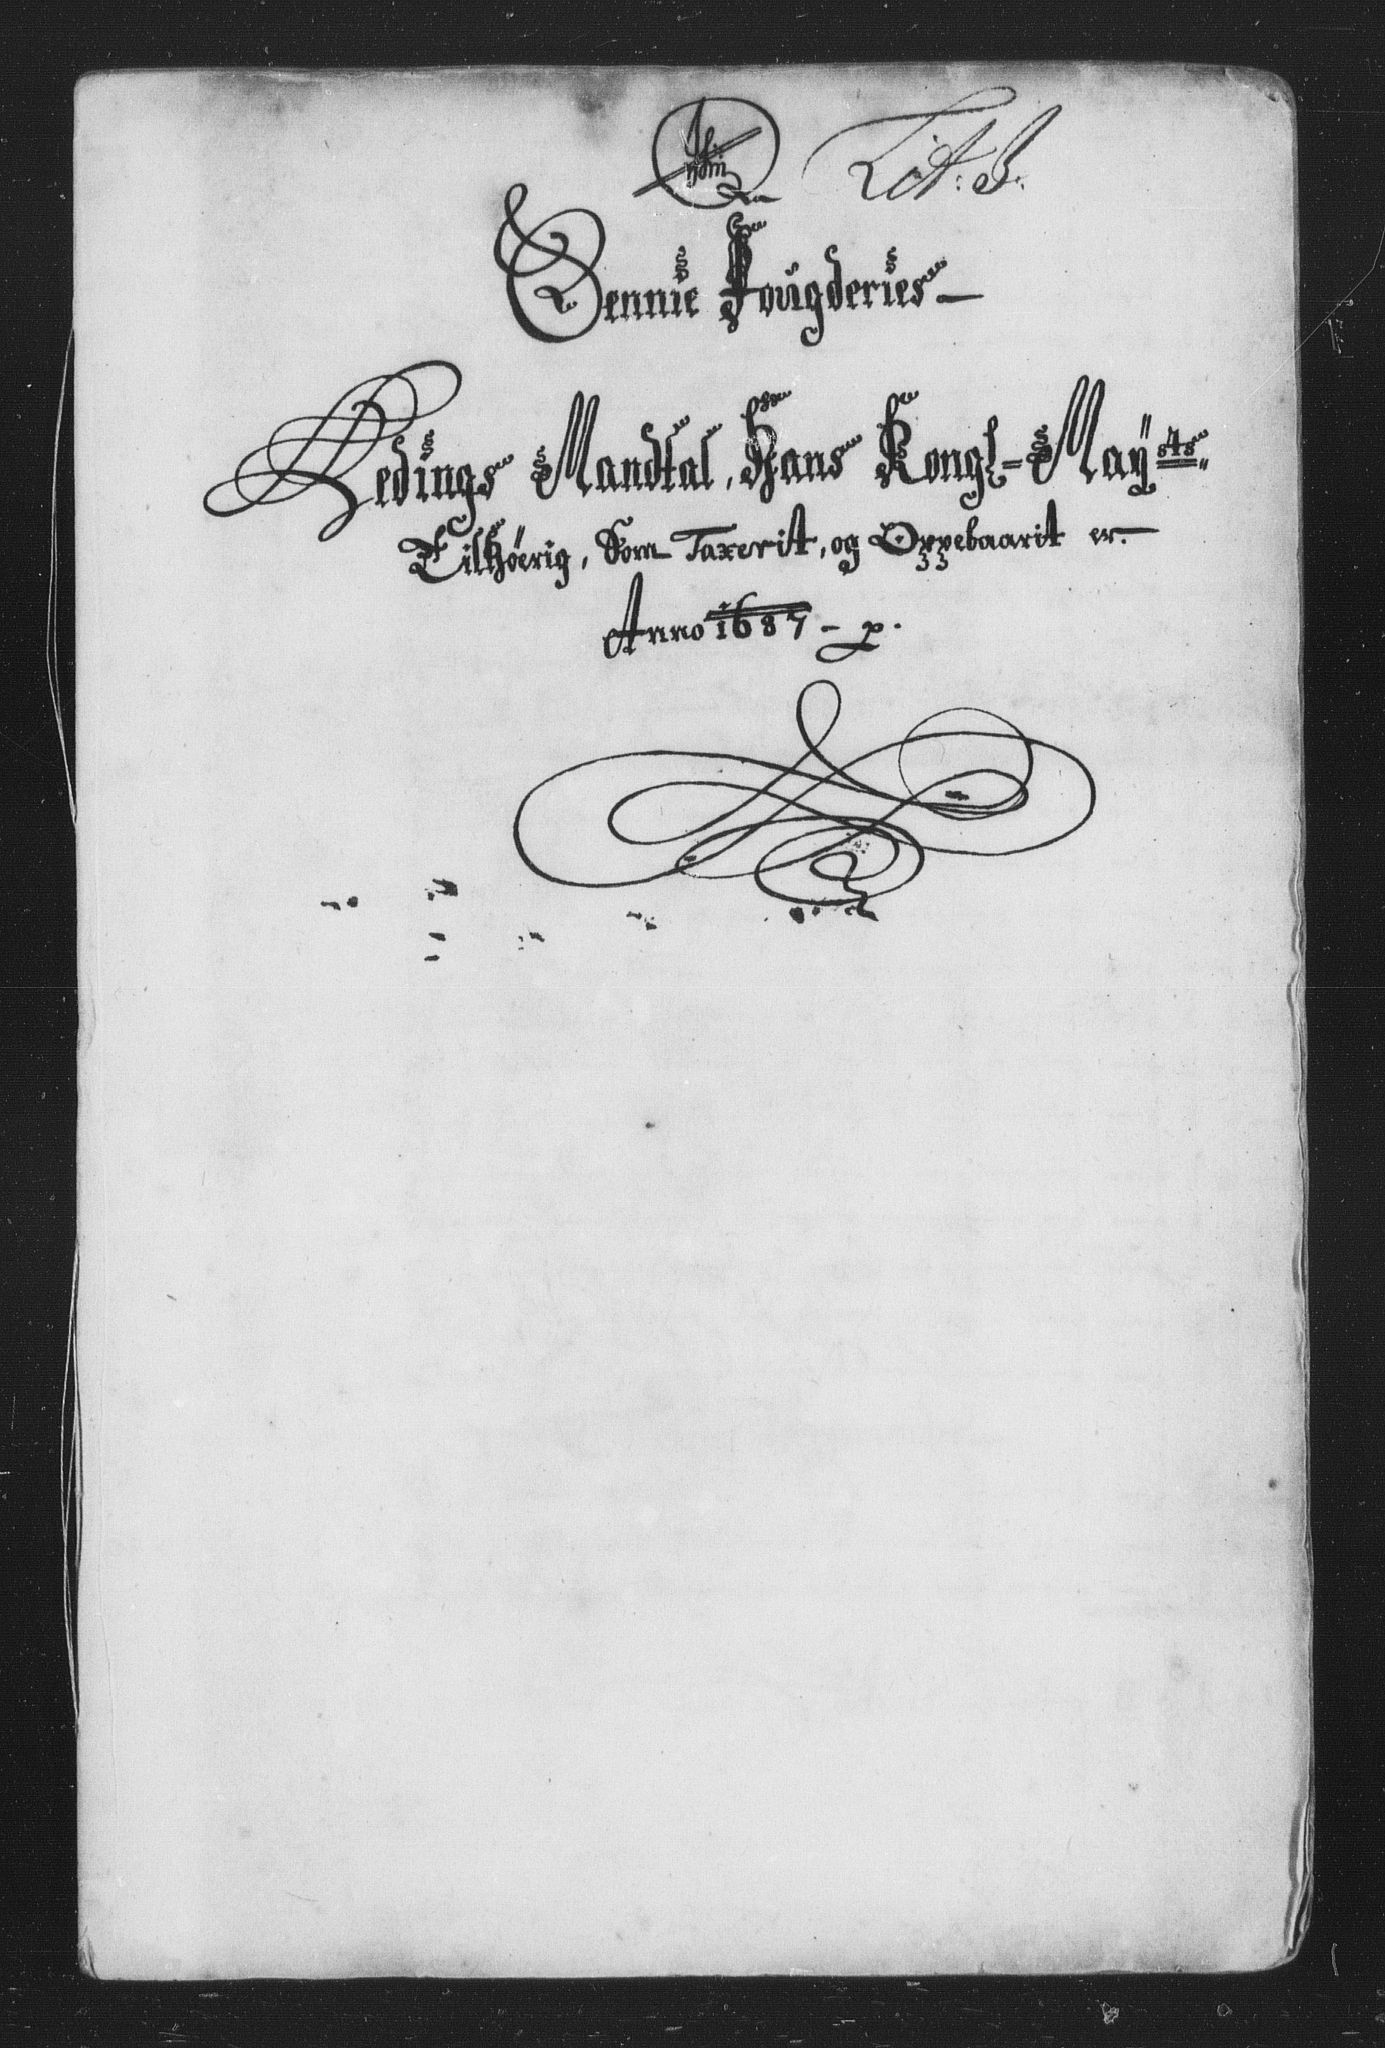 Lit: J.
Dennie Fougderies
Ledings Mandtal, Hans Kongl: Mayts:
Tilhöerig, Som Taxerit, og Oppebaarit er.
Anno 1687